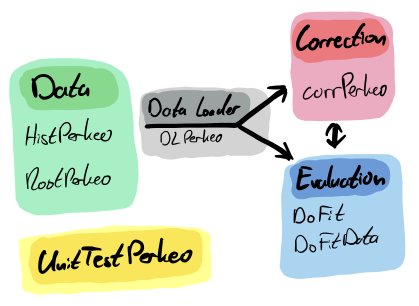 Data
HistPerkeo
RootPerkeo
Data Loader
DLPerkeo
Correction
corrPerkeo
Evaluation
DoFit
DoFitData
UnitTestPerkeo